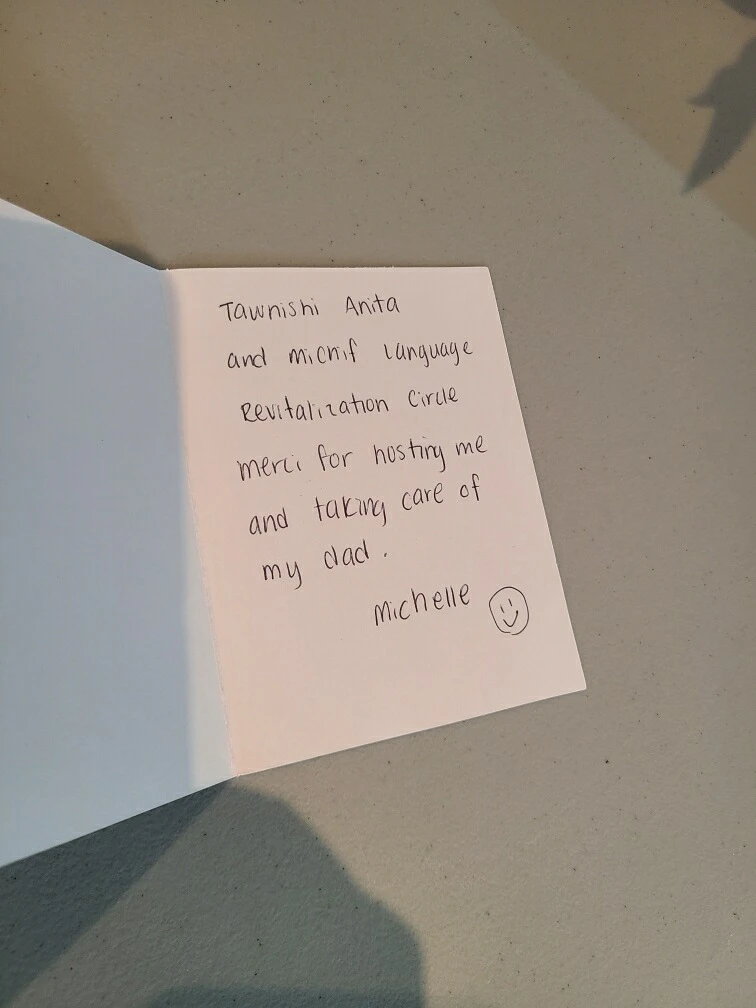 Tawnishi Anita
and michif Language
Revitalization Circle
merci for hosting me
and taking care of
my dad.
Michelle